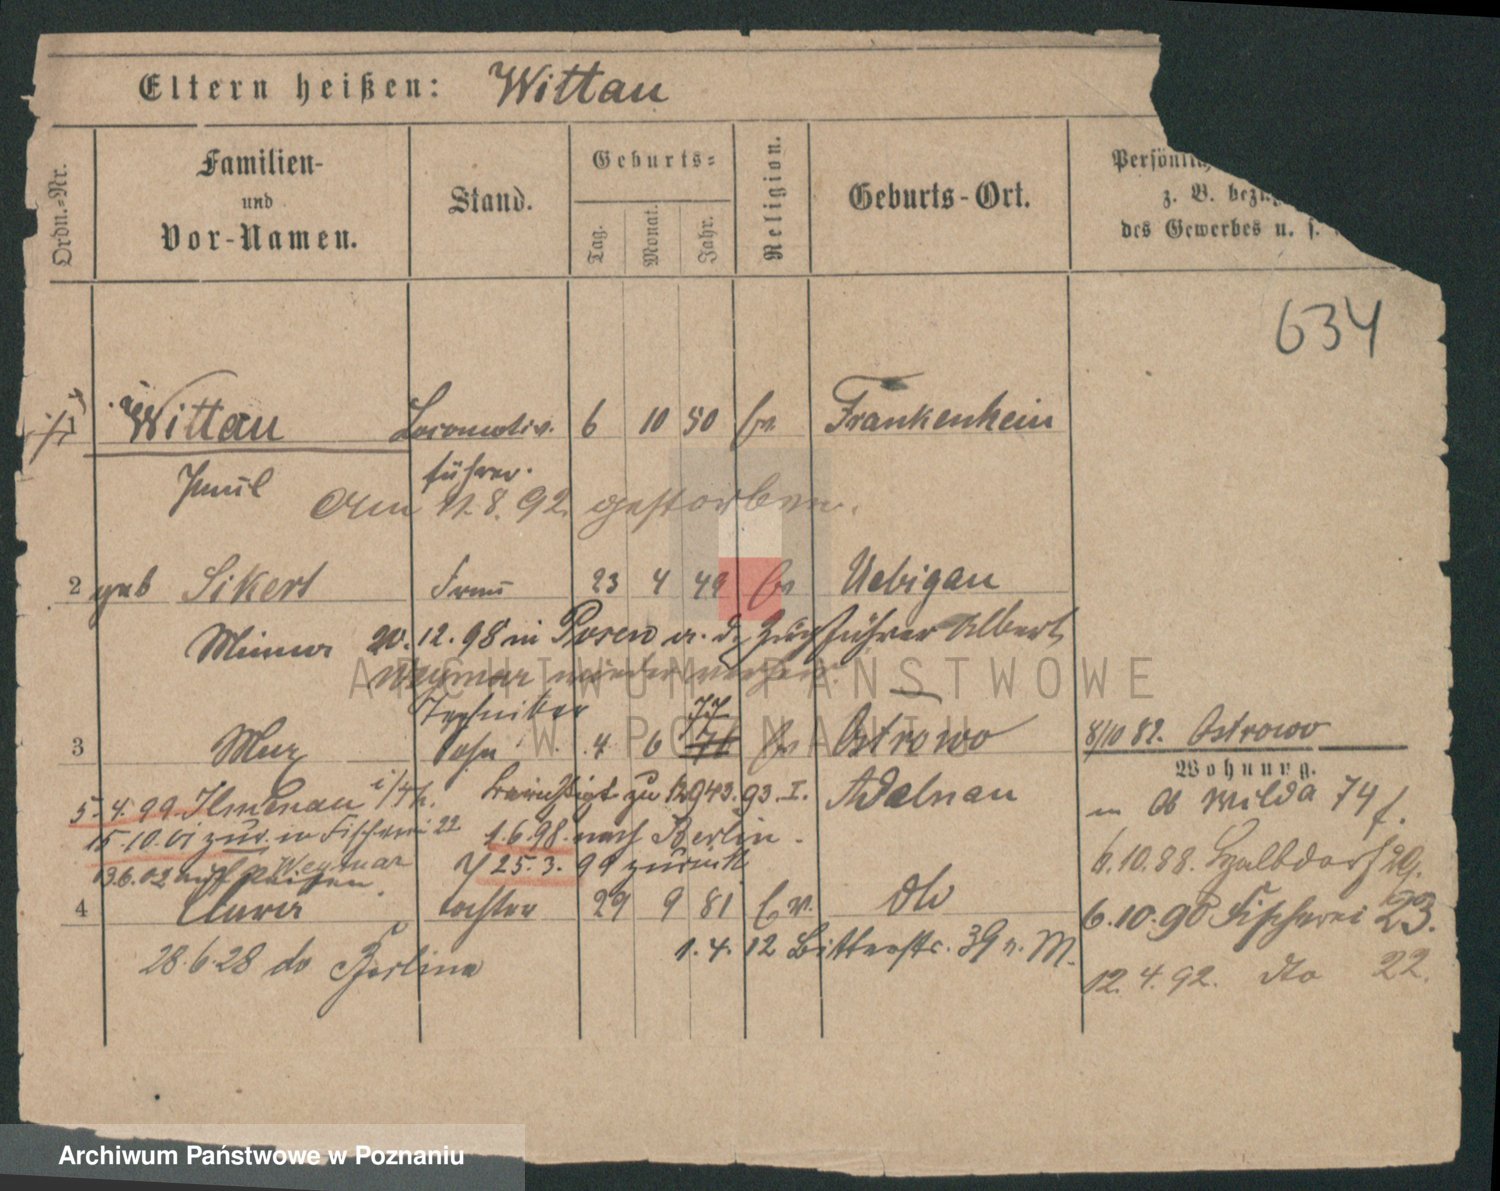 Eltern heißen: Wittau
Ordn.-Nr.
Familien-
und
Vor-Namen.
Stand.
Geburts-
Tag.
Monat.
Jahr.
Religion.
Geburts-Ort.
Persönlich
z. B. bezü
des Gewerbes u. s.
634
1 Wittau Locomotiv- 6 10 50 ev Frankenhein
Paul führer.
Am 11.8.92 gestorben.
2 geb Sikert Frau 23 4 49 ev Uebigau
Minna 20.12.98 in Posen a. d. Zugführer Albert
Weymar wiederverh.
Techniker 77
3 Max Sohn 4 6 76 ev Ostrowo 8/10 82. Ostrowo
Wohnung.
5.4.99 Ilmenau i/Th. berichtigt zu 12943.93.I. Adelnau
Ob Wilda 74
15.10.01 zur. in Fischerei 22 1.6.98 nach Berlin.
6.10.88. 29.
13.6.02 auf Reisen. Weymar 25.3.99 zurück
4 Clara tochter 29 9 81 ev. dto 6.10.90 Fischerei 23.
28.6.28 do Berlin 1.4.12 Bitterstr. 39 M.
12.4.92. dto 22.
ARCHIWUM PAŃSTWOWE
W POZNANIU
Archiwum Państwowe w Poznaniu